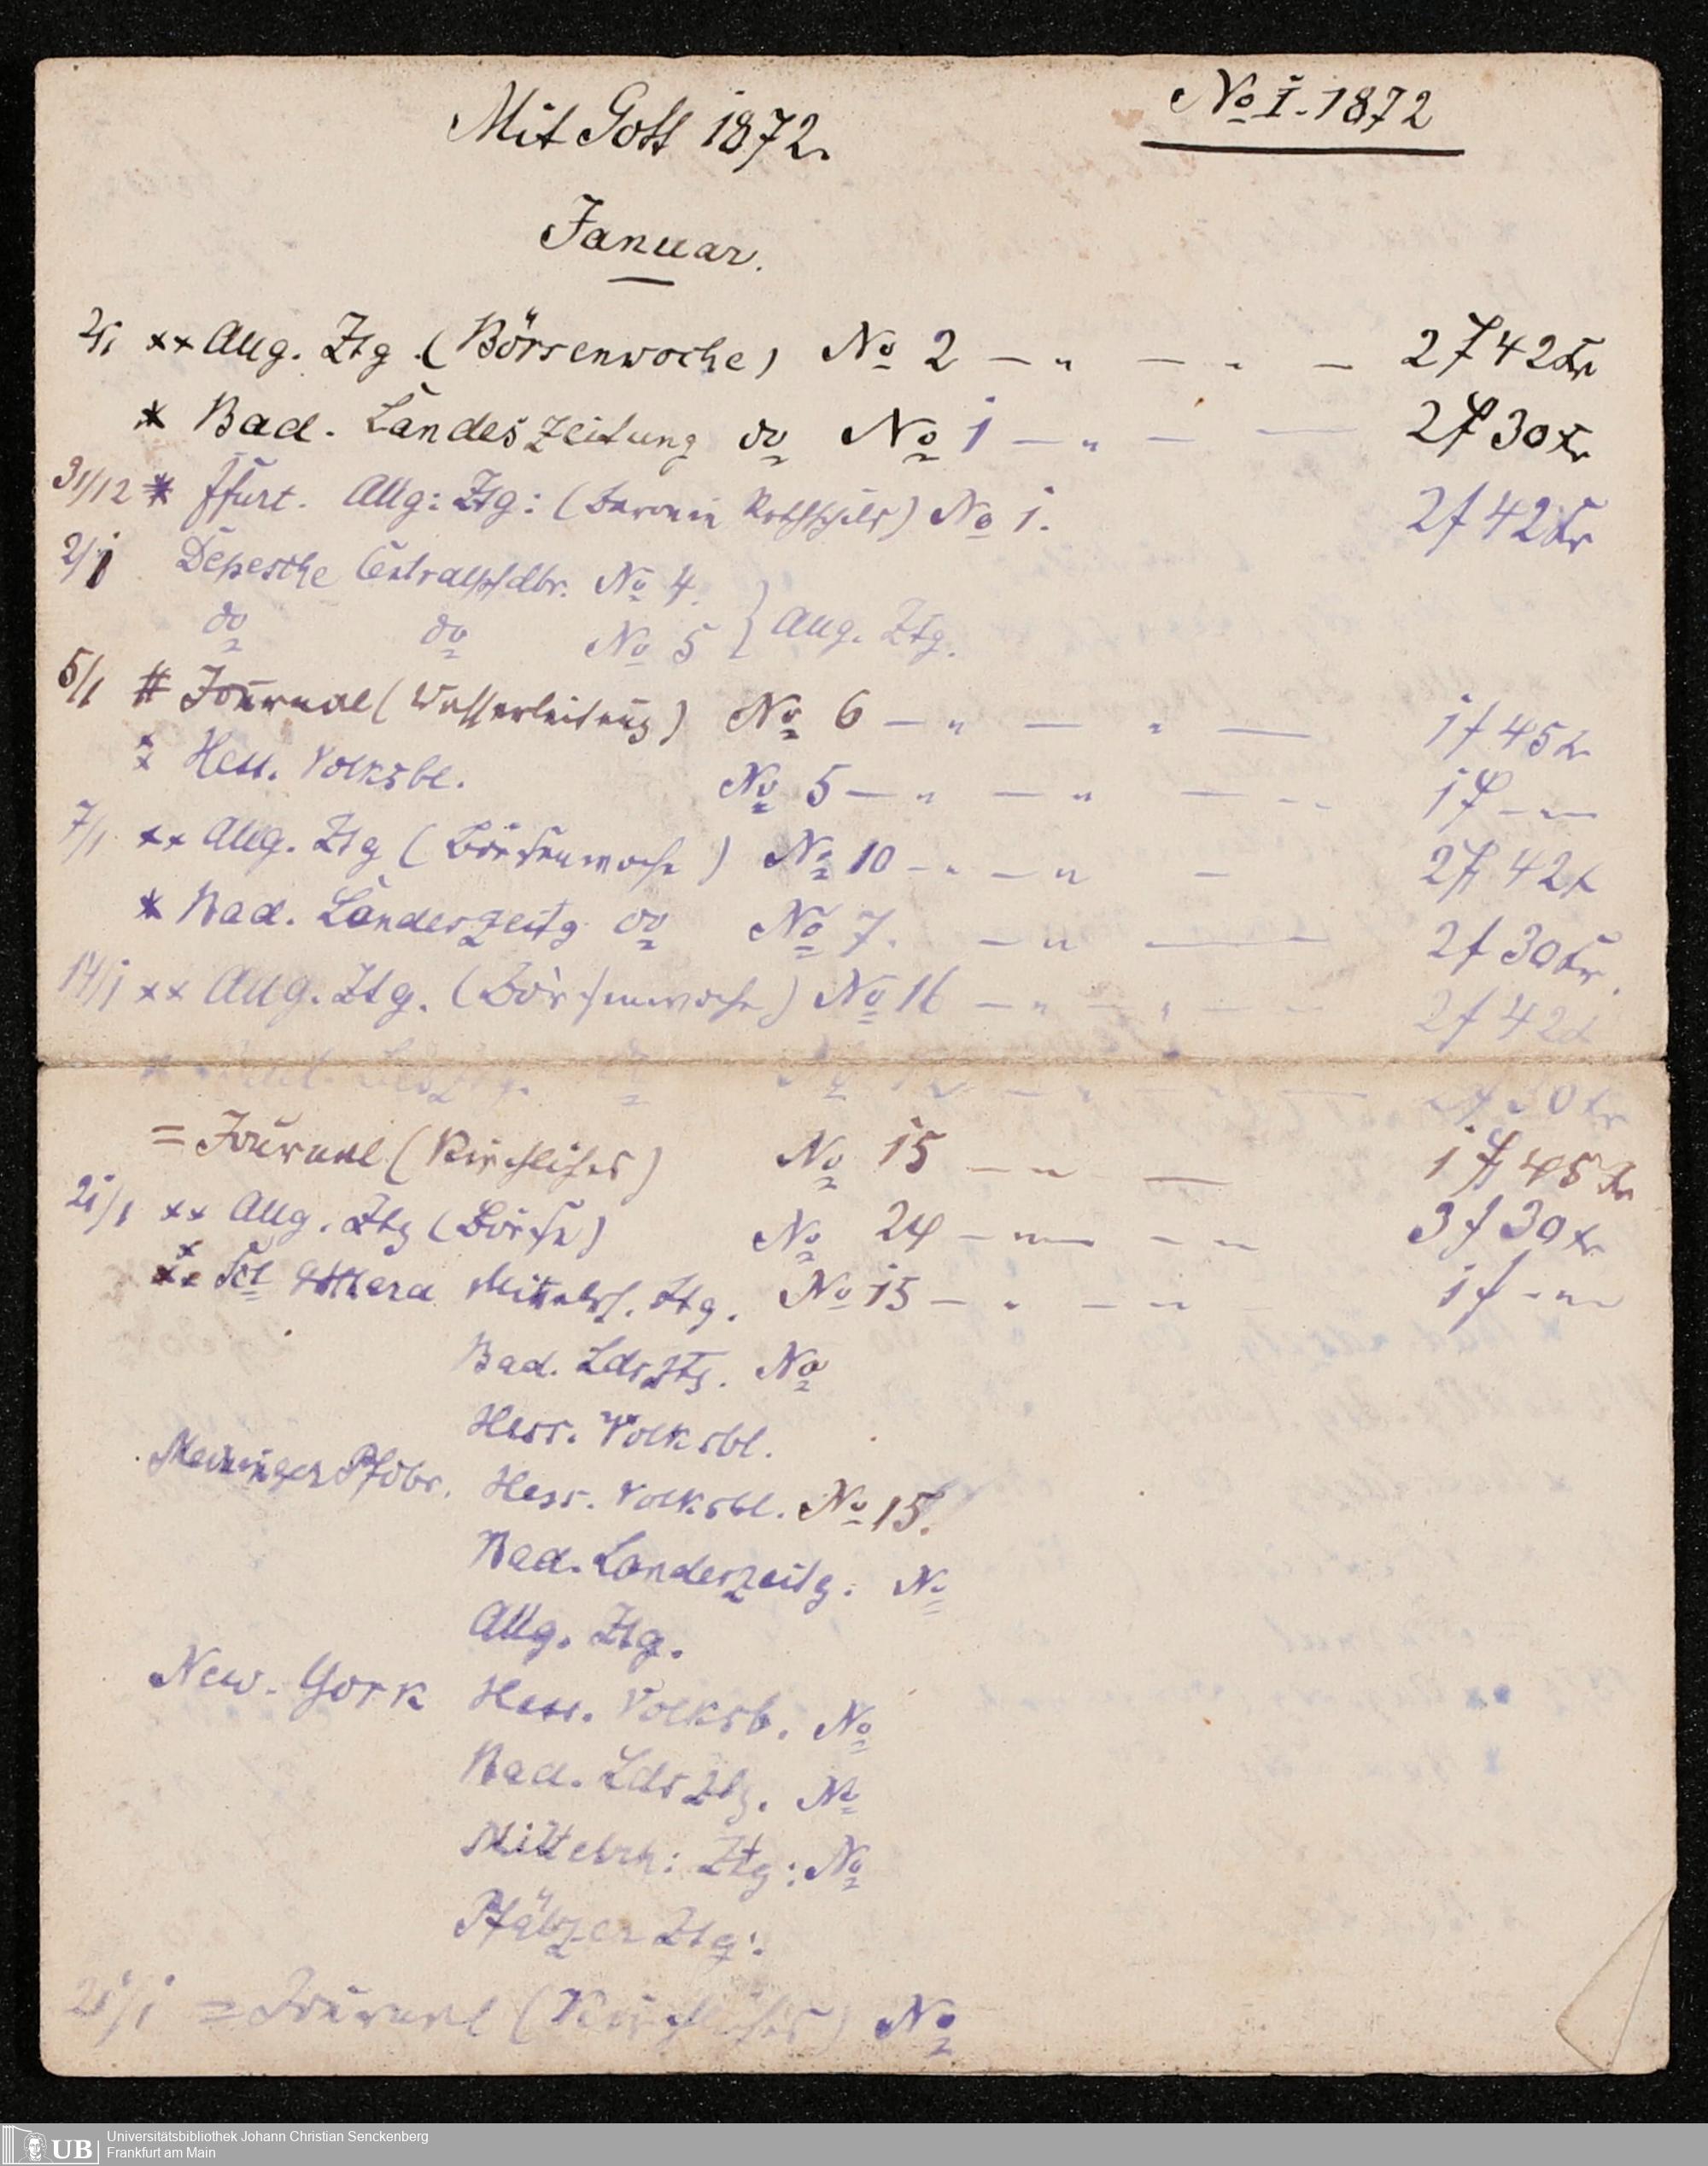 No I. 1872
Mit Gott 1872.
Januar.
2/1 ×× Allg. Ztg. (Börsenwoche) No 2 — " — " — 2 f 42 Kr
* Bad. Landeszeitung do No 1 — " — — 2 f 30 Kr
31/12 * Ffurt. Allg: Ztg: (Baronin Rothschild) No 1. 2 f 42 Kr
2/1 Depesche Centralpfdbr. No 4.
do do No 5 } Allg. Ztg.
5/1 # Journal (Wasserleitung) No 6 — " — " — 1 f 45 Kr
Hess. Volksbl. No 5 — " — " — " 1 f — " —
7/1 ×× Allg. Ztg (Börsenwoche) No 10 — " — " — 2 f 42 x
* Bad. Landeszeitg do No 7. — " — — 2 f 30 Kr.
14/1 ×× Allg. Ztg. (Börsenwoche) No 16 — " — " — — 2 f 42 x
do No — " — " — 2 f 30 Kr
= Journal (Kirchliches) No 15 — " — 1 f 45 Kr
21/1 ×× Allg. Ztg (Börse) No 24 — " — — " 3 f 30 Kr
Mittelrh. Ztg. No 15 — " — " 1 f — " —
Bad. Ldsztg. No
Hess. Volksbl.
Meininger Pfdbr. Hess. Volksbl. No 15.
Bad. Landeszeitg. No
Allg. Ztg.
New-York Hess. Volksb. No
Bad. Ldsztg. No
Mittelrh: Ztg: No
Pfälzer Ztg:.
21/1 = Journal (Kirchliches) No
UB Universitätsbibliothek Johann Christian Senckenberg
Frankfurt am Main